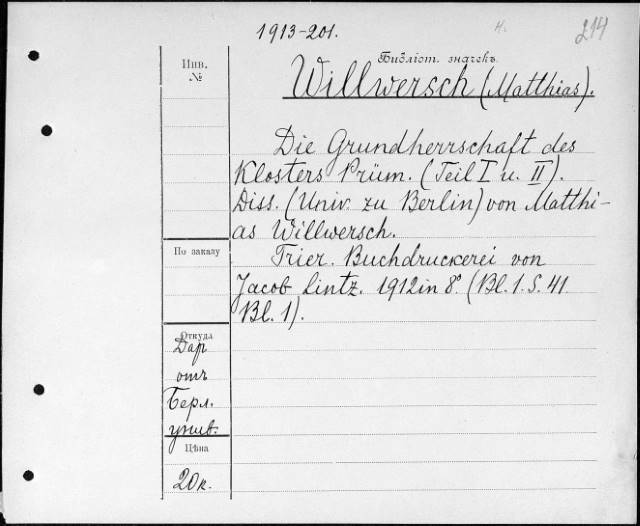 1913-201.
н.
214
Инв.
№
Библіот. значекъ
Willwersch (Matthias).
Die Grundherrschaft des
Klosters Prüm. (Teil I u. II).
Diss. (Univ. zu Berlin) von Matthi-
as Willwersch.
По заказу
Trier. Buchdruckerei von
Jacob Lintz. 1912 in 8°. (Bl. 1. S. 41
Bl. 1).
Откуда
Дар
отъ
Берл.
унив.
Цѣна
20 к.